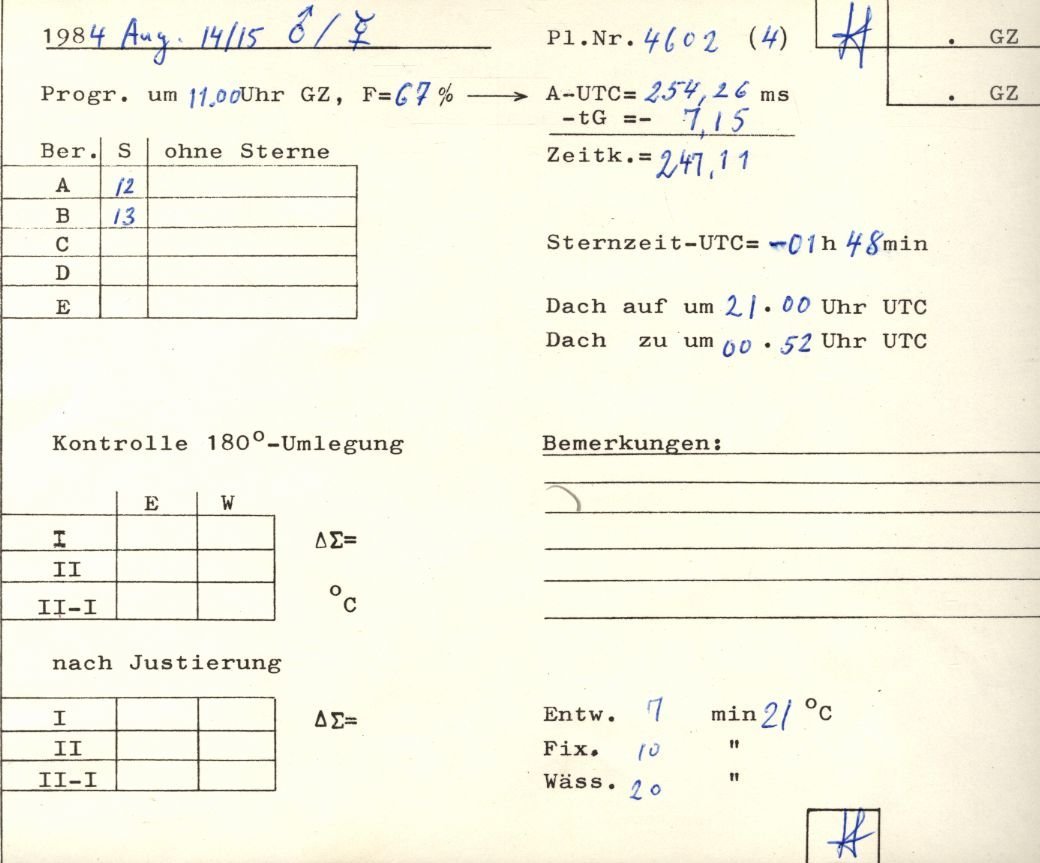 1984 Aug. 14/15 ♂ / ☿
Pl.Nr. 4602 (4)
. GZ
Progr. um 11.00 Uhr GZ, F=67% ⟶ A-UTC= 254,26 ms
. GZ
-tG =- 7,15
Zeitk.= 247,11
Ber. S ohne Sterne
A 12
B 13
C
D
E
Sternzeit-UTC= -01h 48min
Dach auf um 21.00 Uhr UTC
Dach zu um 00.52 Uhr UTC
Kontrolle 180°-Umlegung
E W
I ΔΣ=
II
II-I °C
nach Justierung
I ΔΣ=
II
II-I
Bemerkungen:
Entw. 7 min 21 °C
Fix. 10 "
Wäss. 20 "